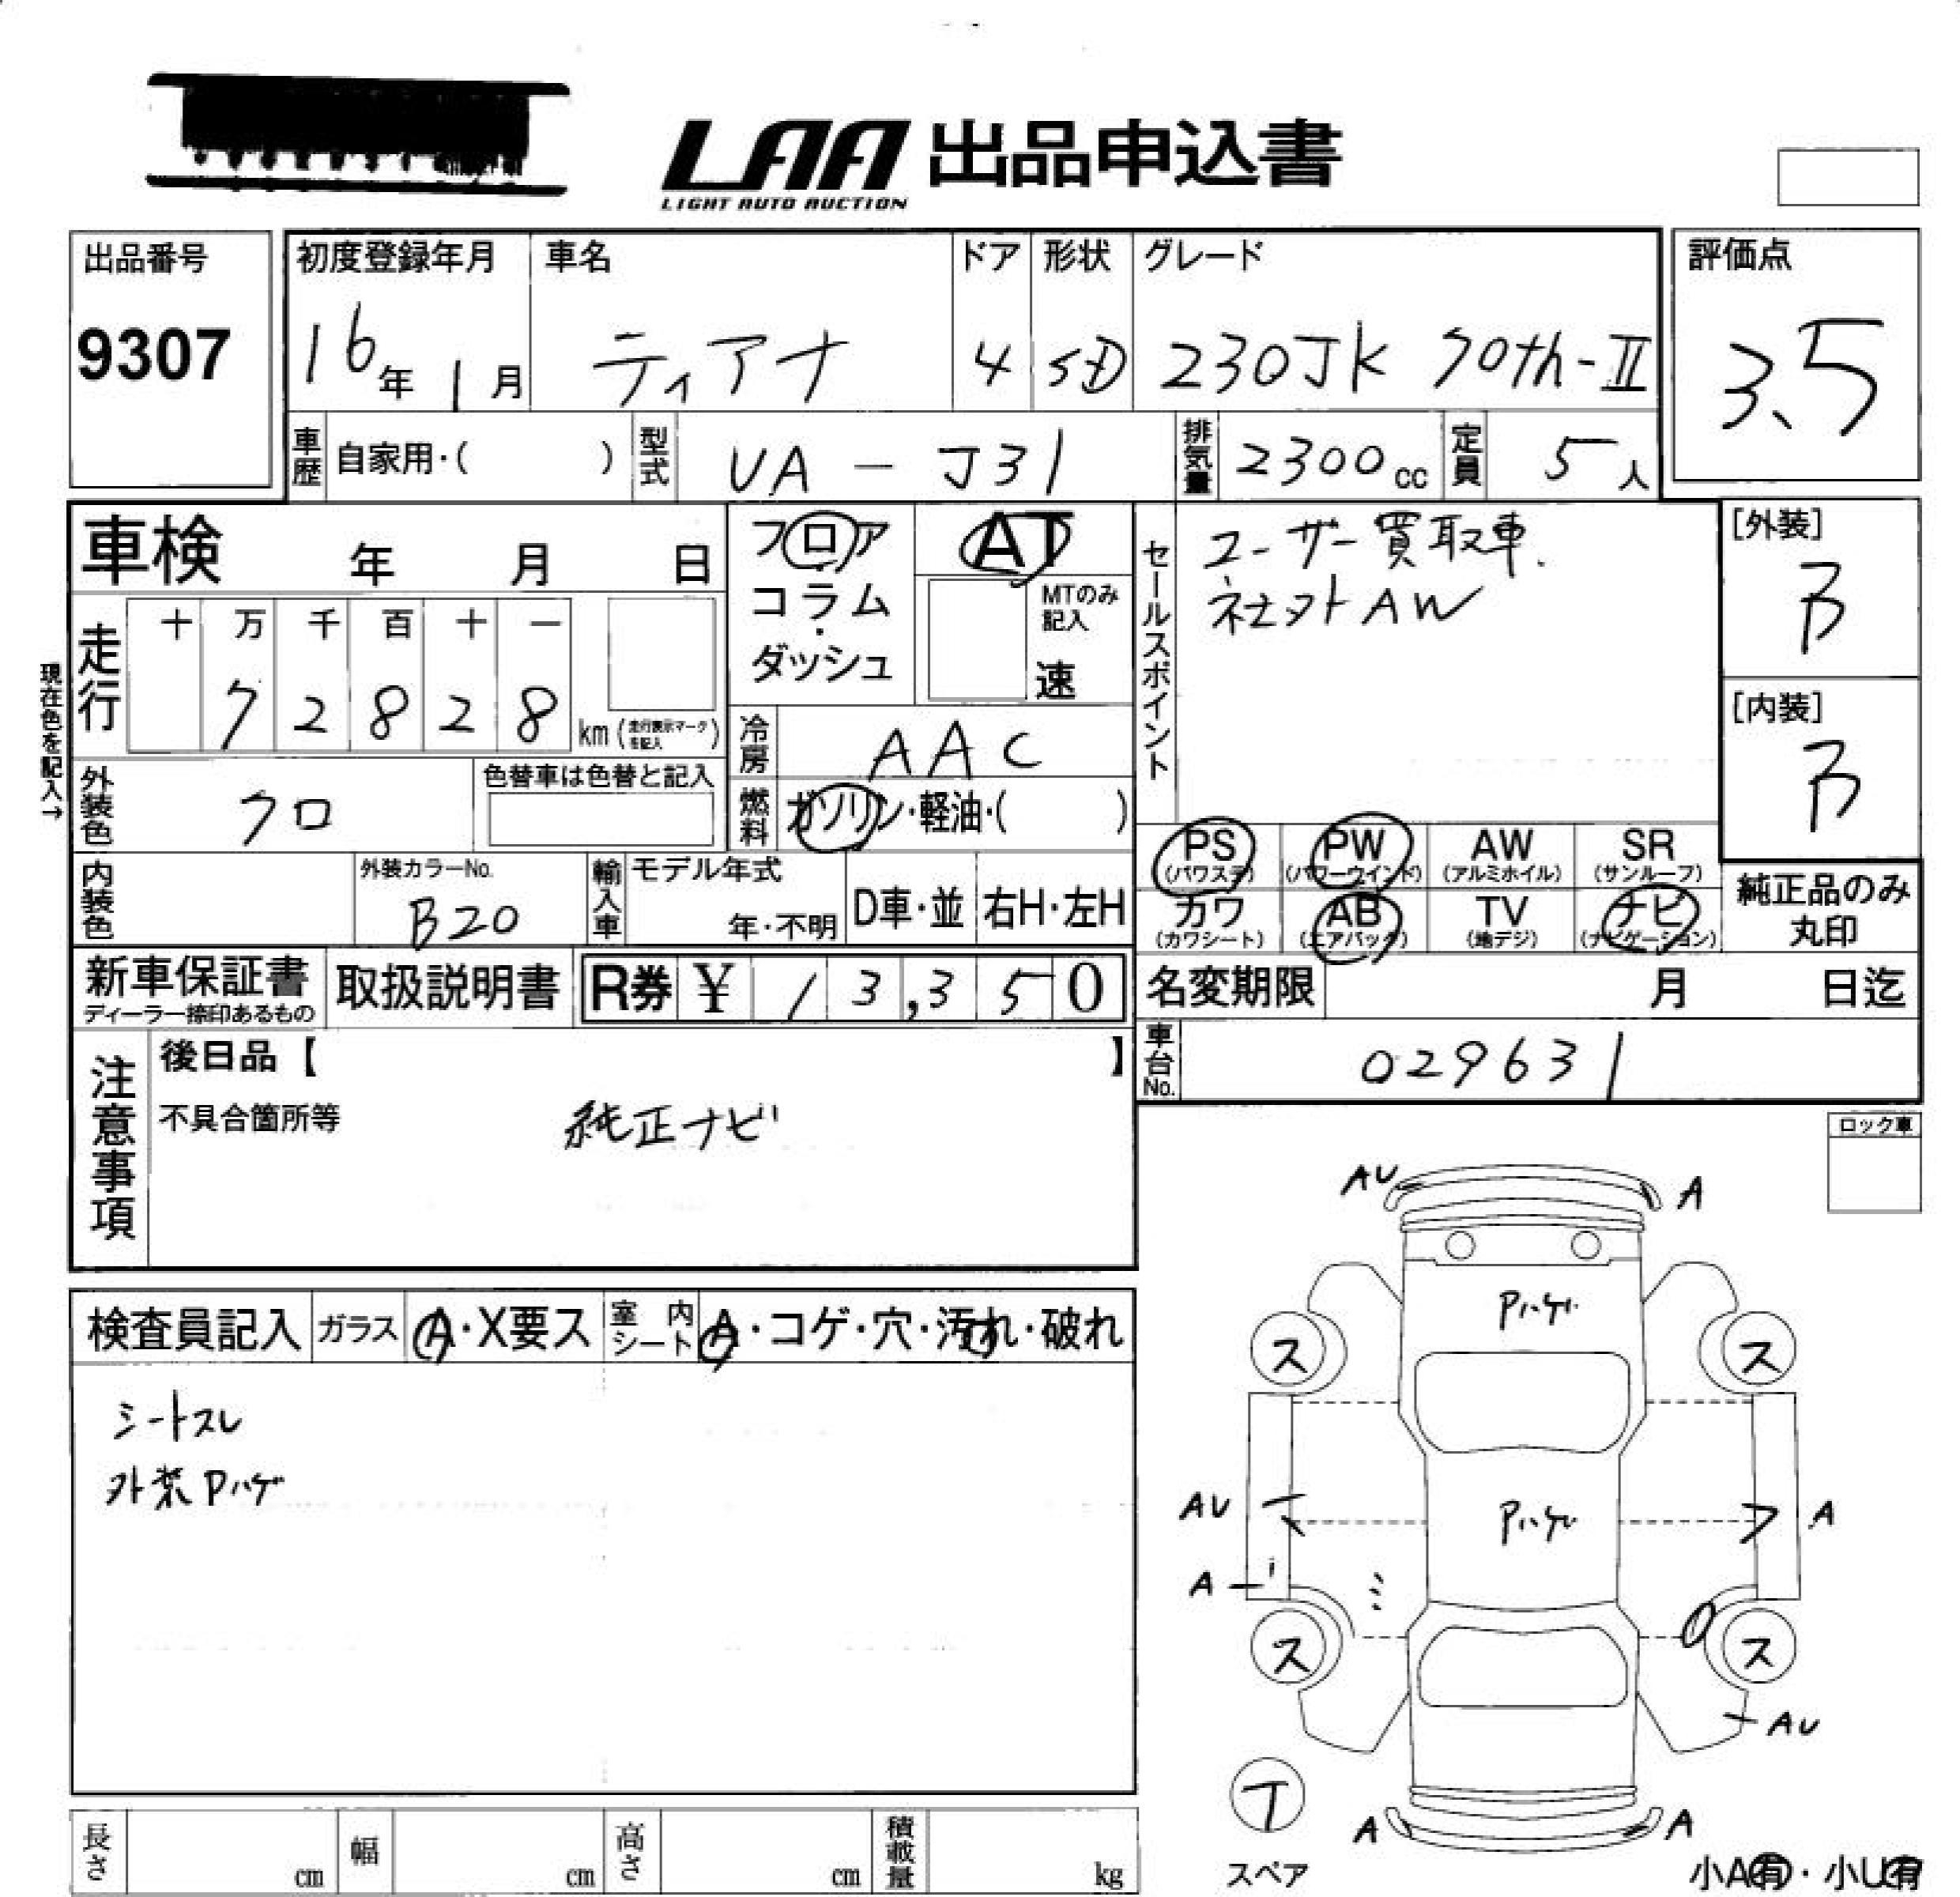 LAA 出品申込書
LIGHT AUTO AUCTION
出品番号
9307
初度登録年月
16年 1月
車名
ティアナ
ドア
4
形状
SD
グレード
230JK 70th-II
評価点
3.5
車歴 自家用・( )
型式 UA - J31
排気量 2300cc
定員 5人
車検 年 月 日
フロア・コラム・ダッシュ
AT
MTのみ記入
速
セールスポイント
ユーザー買取車.
社外AW
[外装]
B
[内装]
B
現在色を記入→
走行
十 万 千 百 十 一
7 2 8 2 8 km (走行表示マークを記入)
冷房 AAC
外装色 クロ
色替車は色替と記入
燃料 ガソリン・軽油・( )
内装色
外装カラーNo.
B20
輸入車
モデル年式
年・不明
D車・並 右H・左H
PS (パワステ)
PW (パワーウインド)
AW (アルミホイル)
SR (サンルーフ)
カワ (カワシート)
AB (エアバック)
TV (地デジ)
ナビ (ナビゲーション)
純正品のみ丸印
新車保証書
ディーラー捺印あるもの
取扱説明書
R券 ¥ 13,350
名変期限 月 日迄
車台No. 029631
注意事項
後日品【 】
不具合箇所等
純正ナビ
ロック車
検査員記入
ガラス A・X要ス
室内シート A・コゲ・穴・汚れ・破れ
シートスレ
外装Pハゲ
AU A
Pハゲ
ス ス
AU Pハゲ A
A
ス ス
AU
T
スペア
A A
小A有・小U有
長さ cm
幅 cm
高さ cm
積載量 kg